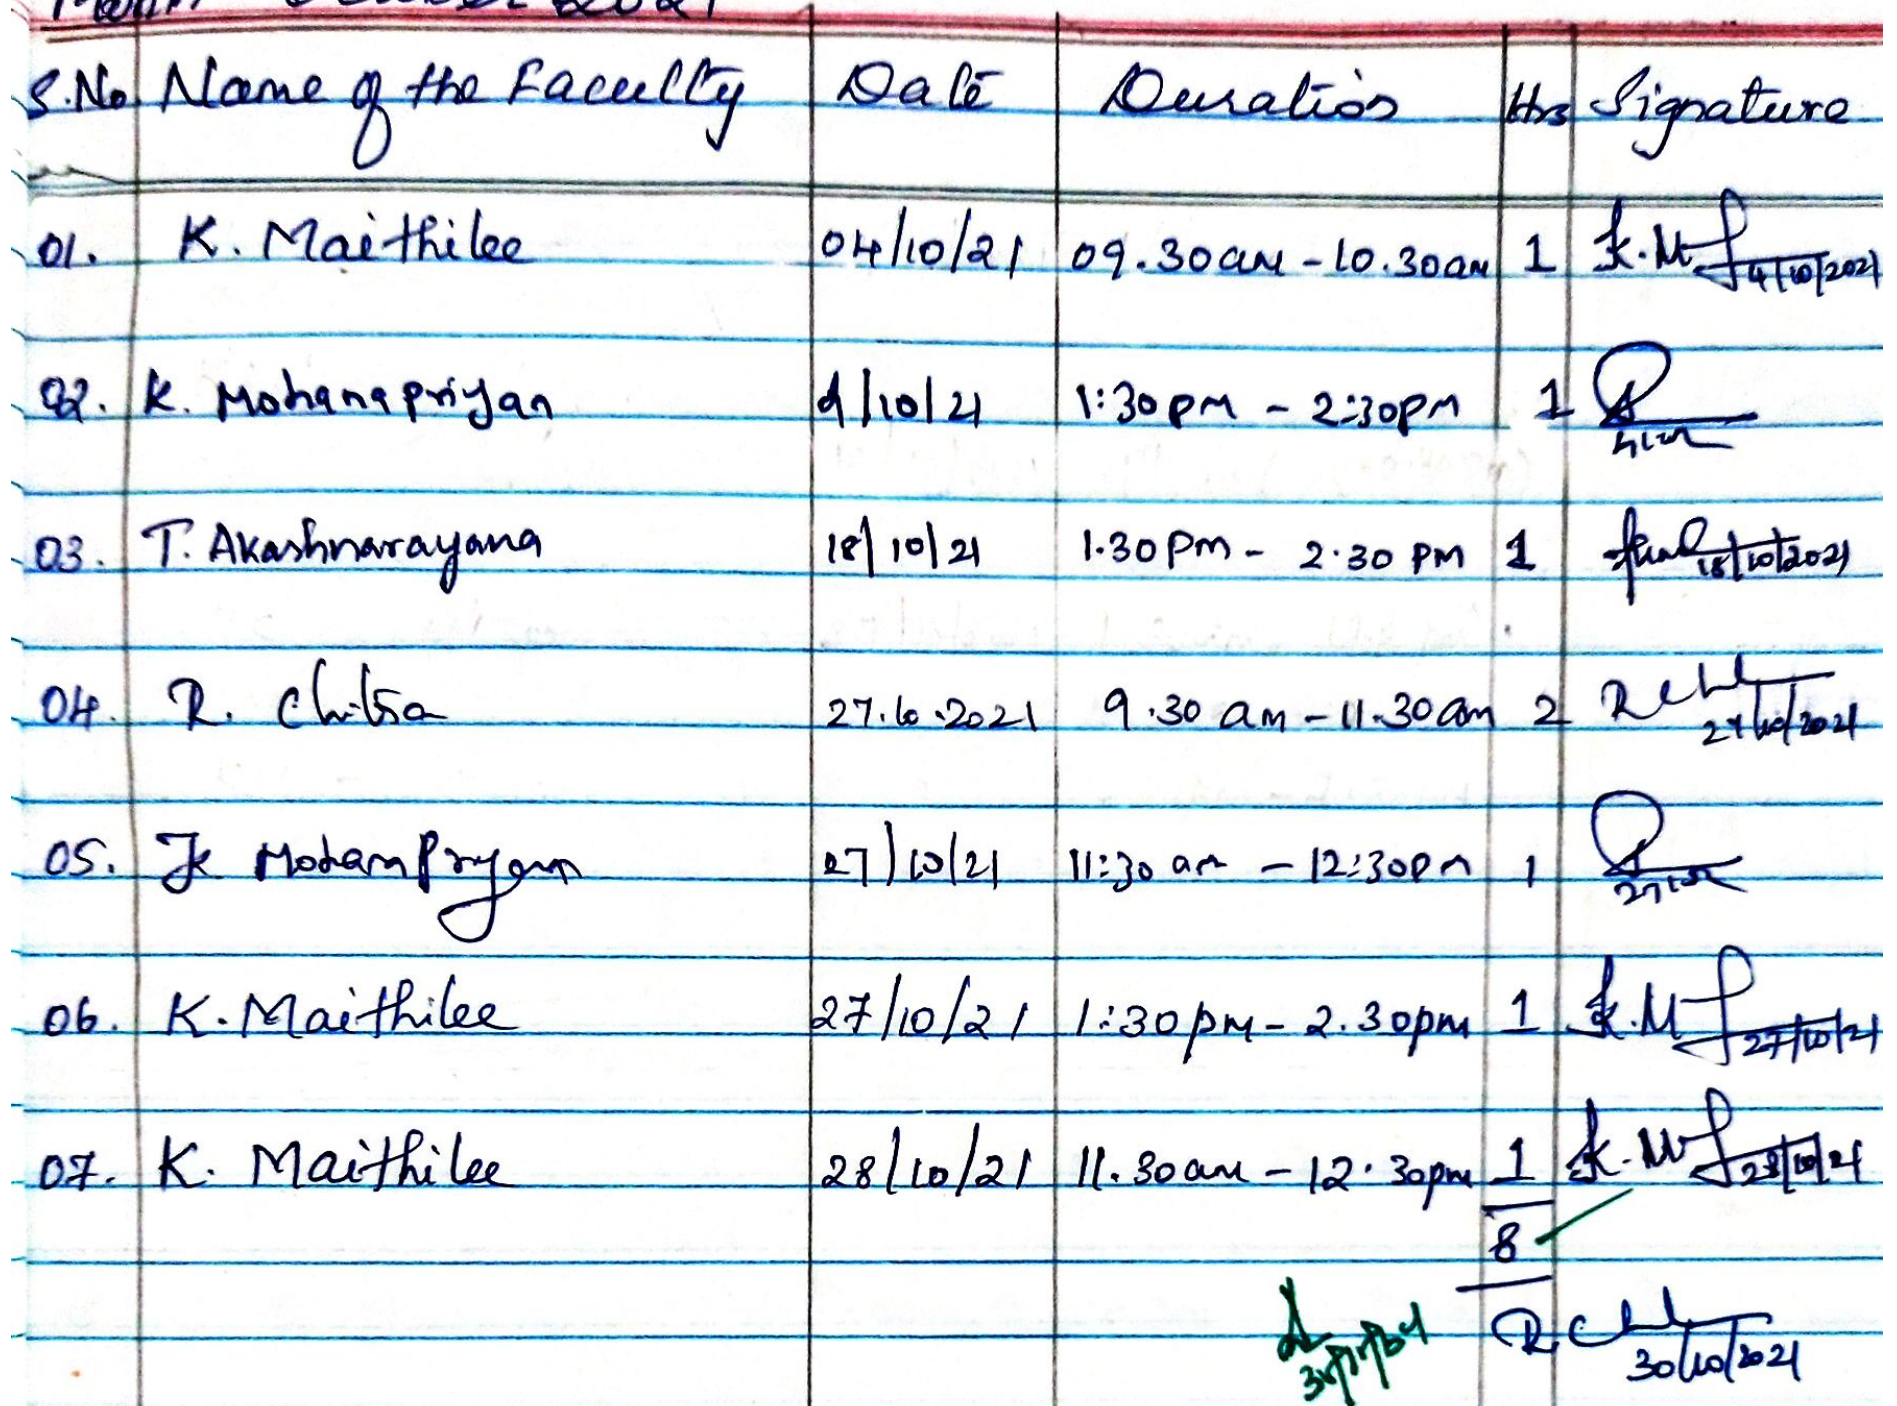 Month October 2021
S.No Name of the Faculty Date Duration Hrs Signature
01. K. Maithilee 04/10/21 09.30am - 10.30am 1 K.M 4/10/2021
02. K. Mohanapriyan 4/10/21 1:30pm - 2:30pm 1
03. T. Akashnarayana 18/10/21 1.30pm - 2.30 pm 1 18/10/2021
04. R. Chitra 27.10.2021 9.30 am - 11.30am 2 R 27/10/2021
05. K Mohanpriyan 27/10/21 11:30 am - 12:30pm 1
06. K. Maithilee 27/10/21 1:30pm - 2.30pm 1 K.M 27/10/21
07. K. Maithilee 28/10/21 11.30am - 12.30pm 1 K.M 28/10/21
8
R
30/10/2021